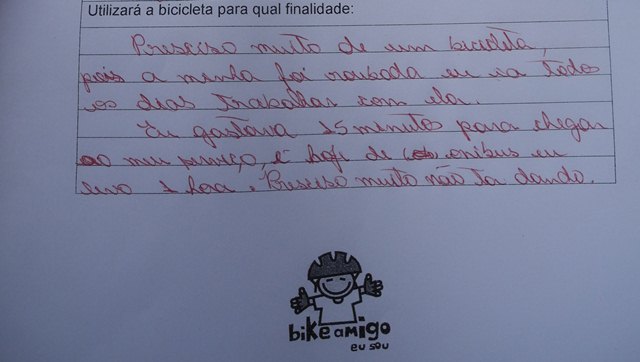 Utilizará a bicicleta para qual finalidade:
Presciso muito de um bicicleta,
pois a minha foi roubada eu ia todos
os dias trabalhar com ela.
Eu gastava 15 minutos para chegar
ao meu serviço, é hoje de onibus eu
levo 1 hora. Presciso muito não ta dando.
bike amigo
eu sou